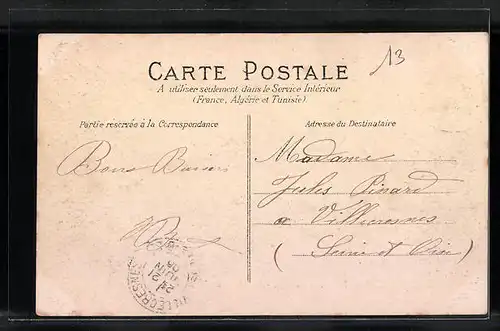 13
CARTE POSTALE
A utiliser seulement dans le Service Intérieur
(France, Algérie et Tunisie)
Partie réservée à la Correspondance
Adresse du Destinataire
Bons Baisers
Madame
Jules Pinard
a Villecresnes
(Seine et Oise)
VILLECRESNES